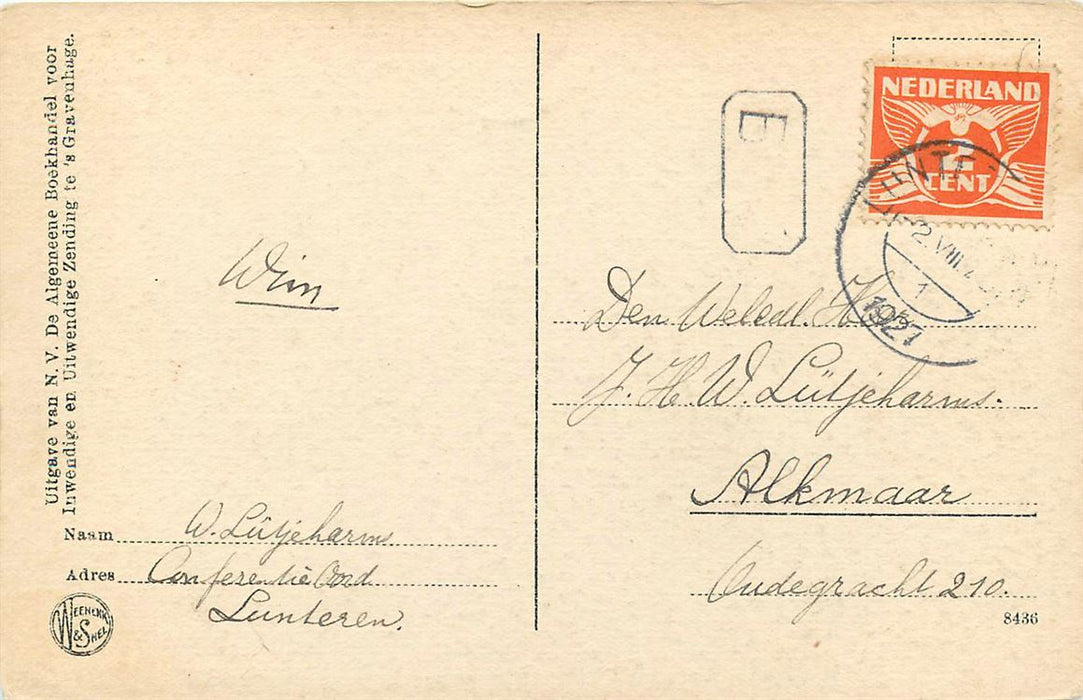 Uitgave van N. V. De Algemeene Boekhandel voor
Inwendige en Uitwendige Zending te 's Gravenhage.
Wim
Naam W. Lütjeharms
Adres Conferentie Oord
Lunteren.
WEENENK
& SNEL
E
NEDERLAND
CENT
LUNTE
2 VIII
1
1927
Den Weledl. H
J. H. W. Lütjeharms.
Alkmaar
Oudegracht 210.
8436